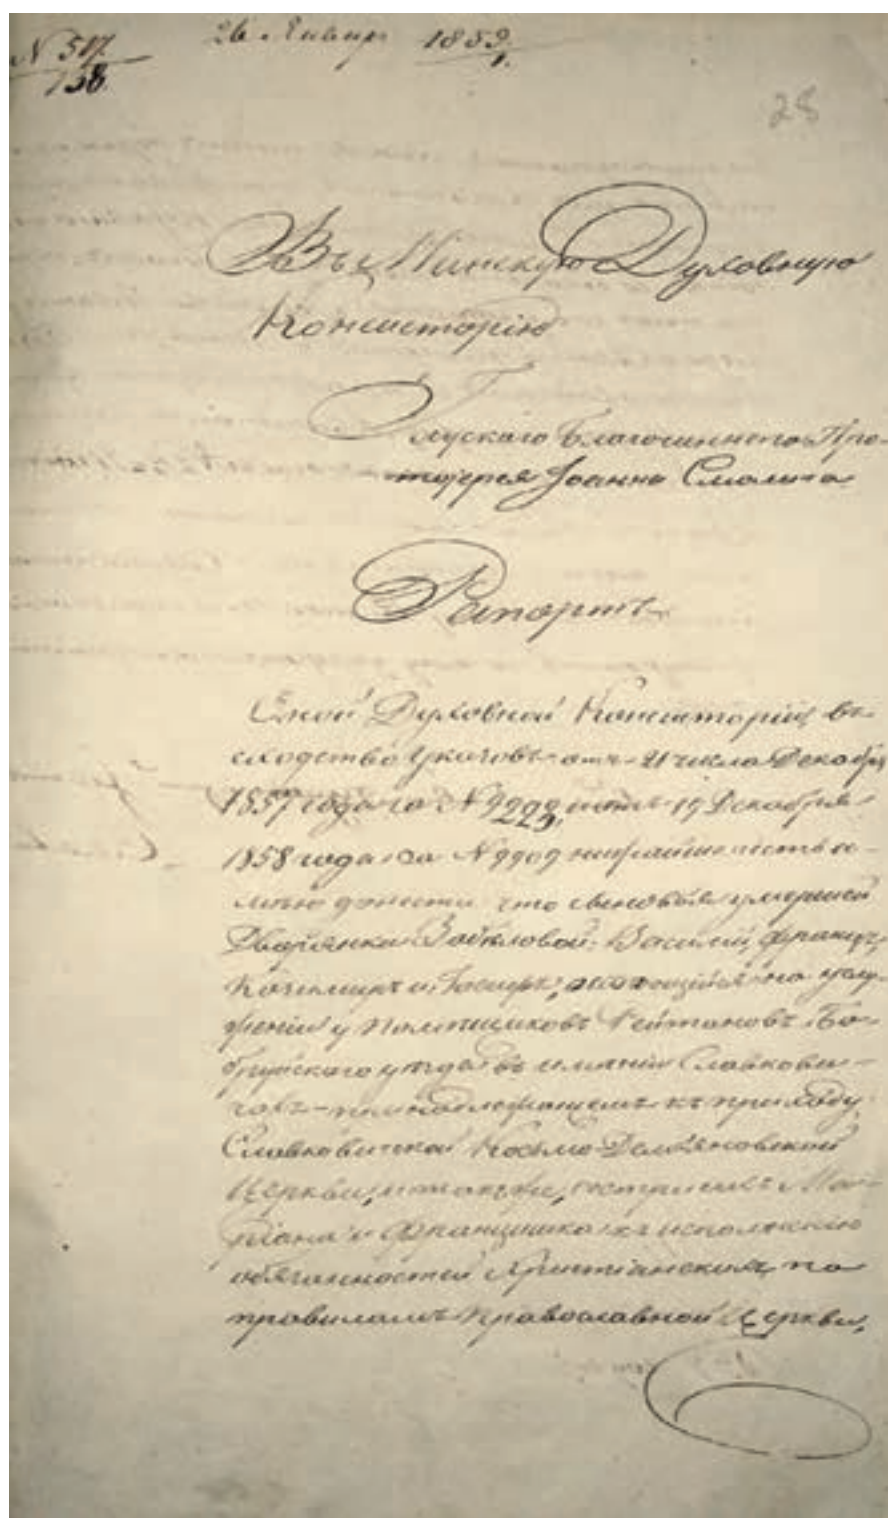 N 517.
738.
26 Январ 1859.
28
Въ Минскую Духовную
Консисторію
Глускаго Благочиннаго Про-
тоіерея Іоанна Смолича
Рапортъ
Оной Духовной Консисторіи, въ
сходство Указовъ отъ 21 числа Декабря
1857 года за N
1858 года за N 9909
донести что сыновья умершей
Дворянки Василій, Францъ,
Казимиръ и Іосифъ, состоящіе на
у помѣщиковъ Рейтановъ Бо-
бруйскаго уѣзда въ имѣніи Славкови-
чахъ принадлежащемъ къ приходу
Славковитской Косьмо-Демьяновской
Церкви, и также, сестры ихъ Ма-
ріана и Францишка къ исполненію
обязанностей Христіанскихъ, по
правиламъ Православной Церкви,